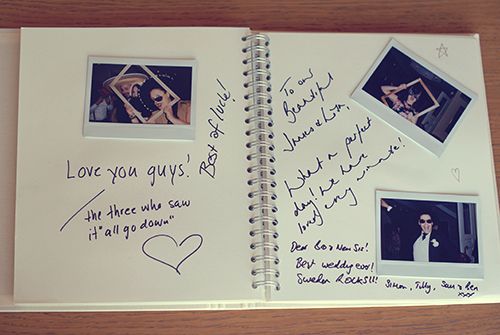 Love you guys!
the three who saw
it "all go down"
Best of luck!
To our
Beautiful
James & Lisa,
What a perfect
day! We have
loved every minute!
Dear Bo & New Sis!
Best wedding ever!
Sweden Rocks!!!
Simon, Tilly, Sam & Ben
xxx